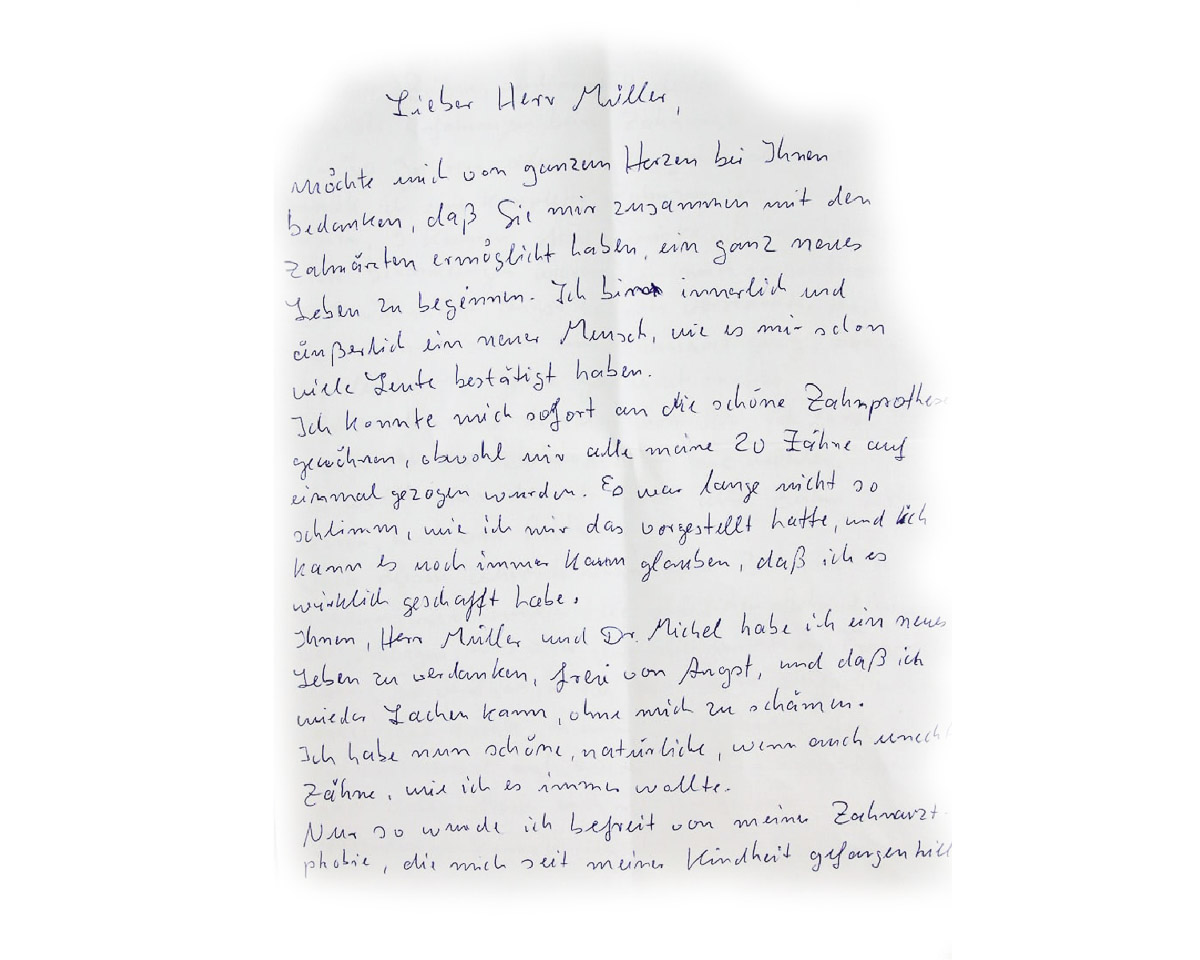 Lieber Herr Müller,
möchte mich von ganzem Herzen bei Ihnen
bedanken, daß Sie mir zusammen mit den
Zahnärzten ermöglicht haben, ein ganz neues
Leben zu beginnen. Ich bin innerlich und
äußerlich ein neuer Mensch, wie es mir schon
viele Leute bestätigt haben.
Ich konnte mich sofort an die schöne Zahnprothese
gewöhnen, obwohl mir alle meine 20 Zähne auf
einmal gezogen wurden. Es war lange nicht so
schlimm, wie ich mir das vorgestellt hatte, und ich
kann es noch immer kaum glauben, daß ich es
wirklich geschafft habe.
Ihnen, Herr Müller und Dr. Michel habe ich ein neues
Leben zu verdanken, frei von Angst, und daß ich
wieder Lachen kann, ohne mich zu schämen.
Ich habe nun schöne, natürliche, wenn auch unecht
Zähne, wie ich es immer wollte.
Nur so wurde ich befreit von meiner Zahnarzt-
phobie, die mich seit meiner Kindheit gefangen hielt